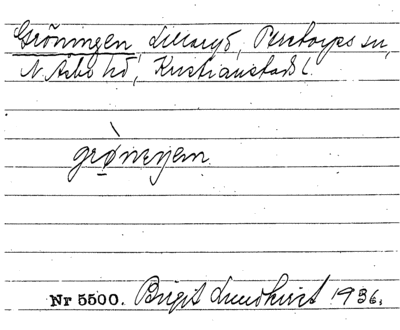 Gröningen, Lillaryd, Perstorps sn,
N Åsbo hd, Kristianstads l.
grø̀neŋen
Nr 5500. Birgit Lundkvist 1936.